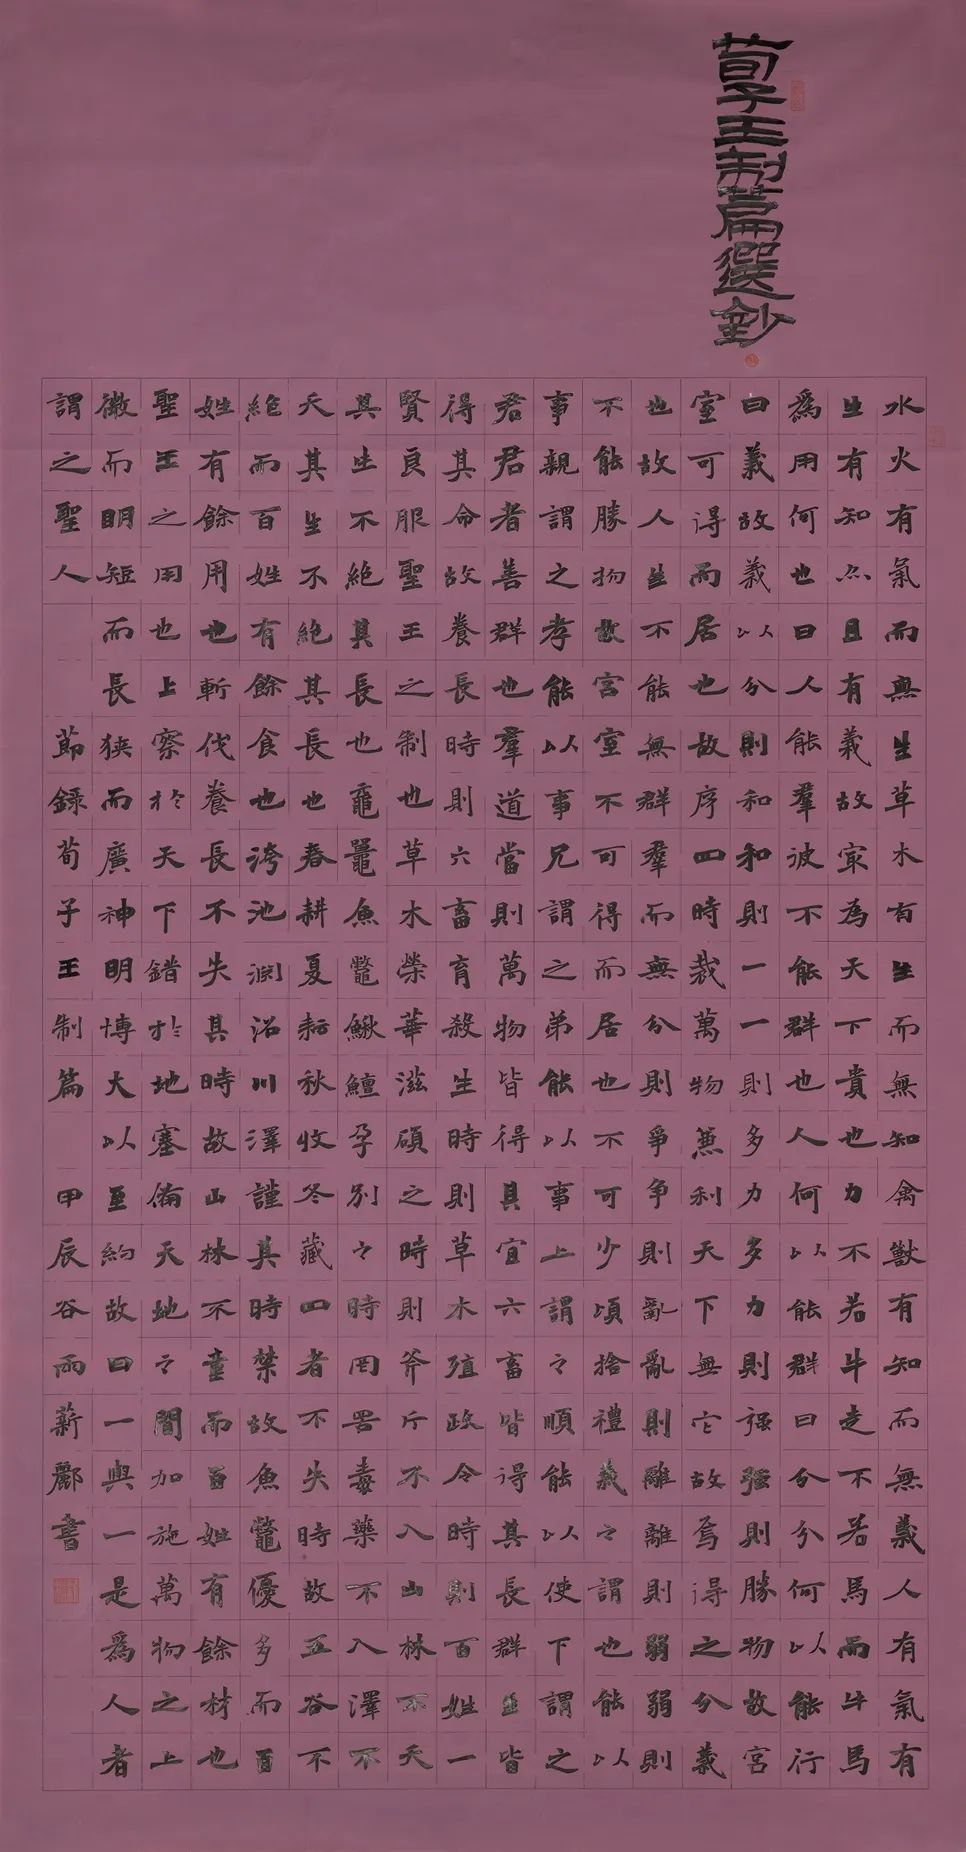 荀子王制篇選鈔
水火有氣而無生草木有生而無知禽獸有知而無義人有氣有
生有知亦且有義故冣為天下貴也力不若牛走不若馬而牛馬
爲用何也曰人能羣彼不能群也人何以能群曰分分何以能行
曰義故義以分則和和則一一則多力多力則强强則勝物故宮
室可得而居也故序四時裁萬物兼利天下無它故焉得之分義
也故人生不能無群羣而無分則爭争則亂亂則離離則弱弱則
不能勝物故宮室不可得而居也不可少頃捨禮義之謂也能以
事親謂之孝能以事兄謂之弟能以事上謂之順能以使下謂之
君君者善群也羣道當則萬物皆得其宜六畜皆得其長群生皆
得其命故養長時則六畜育殺生時則草木殖政令時則百姓一
賢良服聖王之制也草木榮華滋碩之時則斧斤不入山林不夭
其生不絶其長也黿鼉魚鼈鰍鱣孕別之時罔罟毒藥不入澤不
夭其生不絶其長也春耕夏耘秋收冬藏四者不失時故五谷不
絶而百姓有餘食也洿池淵沼川澤謹其時禁故魚鼈優多而百
姓有餘用也斬伐養長不失其時故山林不童而百姓有餘材也
聖王之用也上察於天下錯於地塞備天地之間加施萬物之上
微而明短而長狹而廣神明博大以至約故曰一與一是爲人者
謂之聖人 節錄荀子王制篇 甲辰谷雨薪酈書